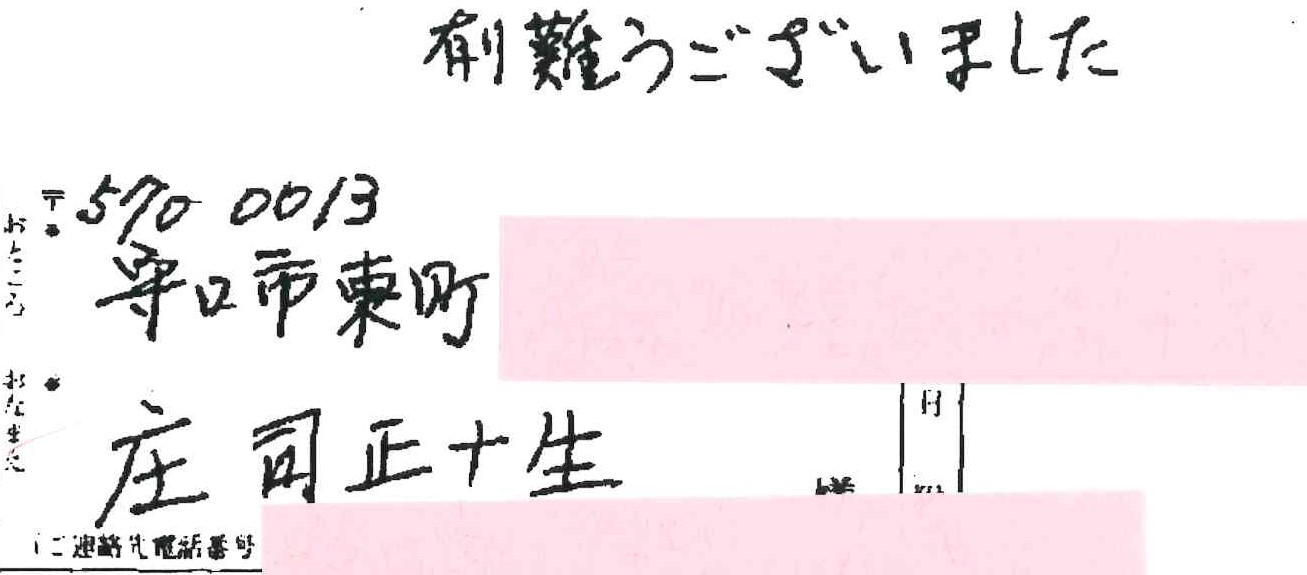 有難うございました
〒 570 0013
おところ
守口市東町
おなまえ
庄司正十生
様
(ご連絡先電話番号